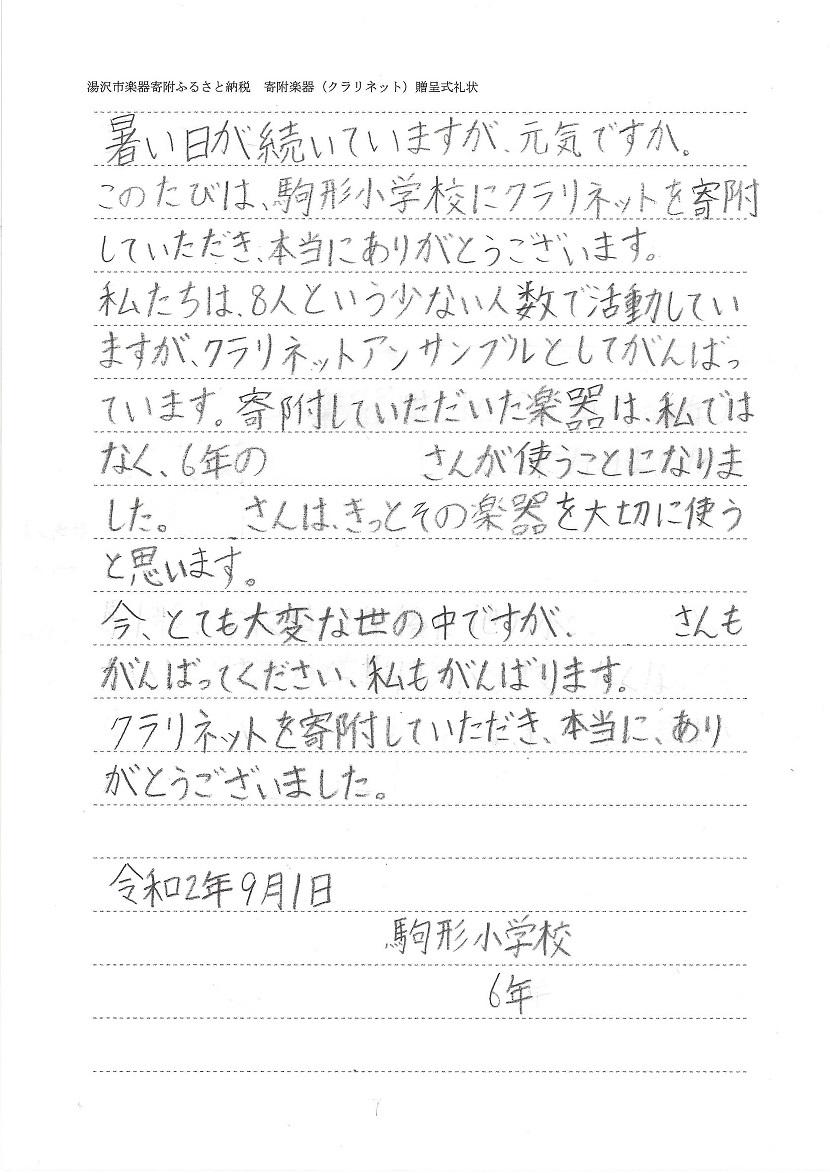 湯沢市楽器寄附ふるさと納税　寄附楽器（クラリネット）贈呈式礼状
暑い日が続いていますが、元気ですか。
このたびは、駒形小学校にクラリネットを寄附
していただき、本当にありがとうございます。
私たちは、8人という少ない人数で活動してい
ますが、クラリネットアンサンブルとしてがんばっ
ています。寄附していただいた楽器は、私では
なく、6年の　　　　　さんが使うことになりま
した。　　　さんは、きっとその楽器を大切に使う
と思います。
今、とても大変な世の中ですが、　　　　さんも
がんばってください、私もがんばります。
クラリネットを寄附していただき、本当に、あり
がとうございました。
令和2年9月1日
駒形小学校
6年